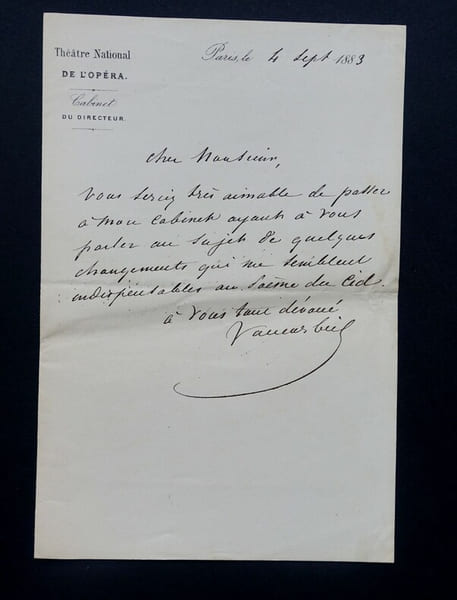 Théâtre National
DE L'OPÉRA.
Cabinet
DU DIRECTEUR.
Paris, le 4 Sept 1883
Cher Monsieur,
Vous seriez très aimable de passer
à mon Cabinet ayant à vous
parler au sujet de quelques
changements qui me semblent
indispensables au Poème du Cid.
à vous tout dévoué
Vaucorbeil